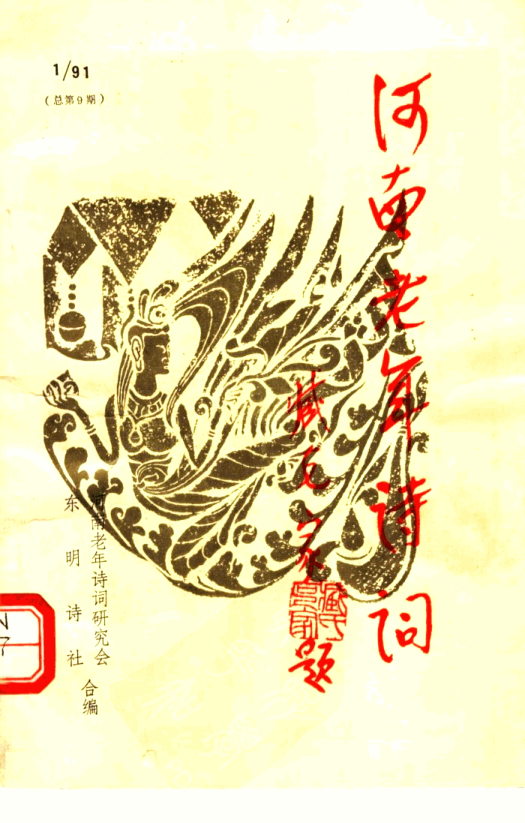 1/91
(总第9期)
河南老年诗词
臧克家题
河南老年诗词研究会
东明诗社
合编
N
7